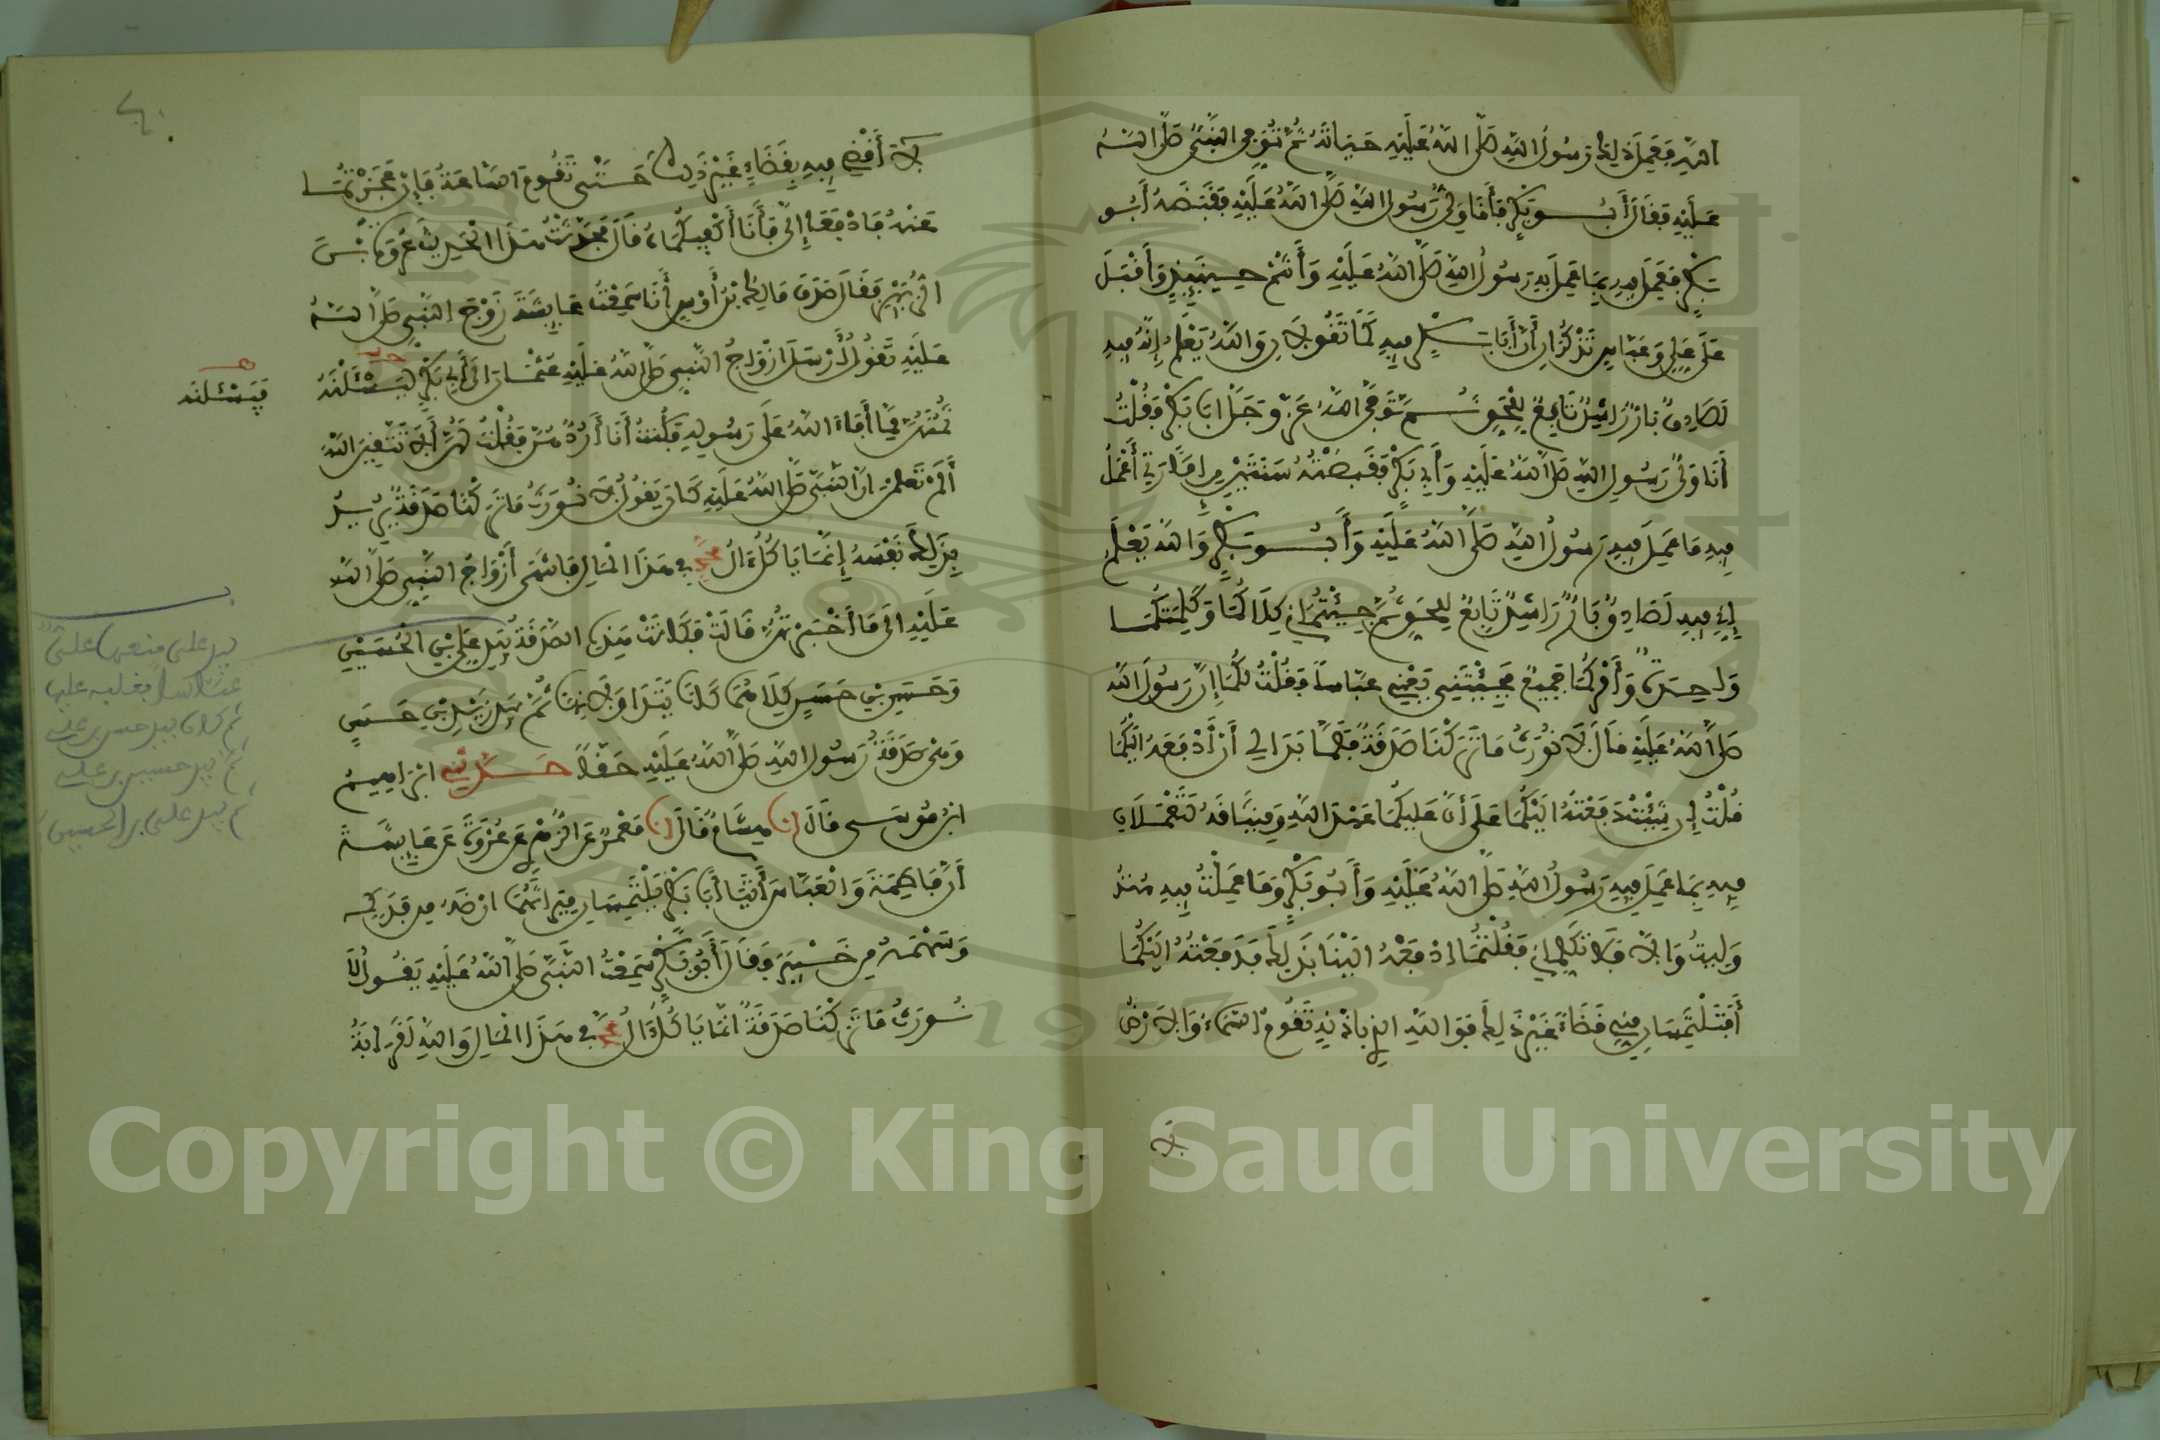 اللهِ فَعَمِلَ ذَلِكَ رَسُولُ اللهِ صَلَّى اللهُ عَلَيْهِ حَيَاتَهُ ثُمَّ تُوُفِّيَ النَّبِيُّ صَلَّى اللهُ
عَلَيْهِ فَقَالَ أَبُو بَكْرٍ فَأَنَا وَلِيُّ رَسُولِ اللهِ صَلَّى اللهُ عَلَيْهِ فَقَبَضَهُ أَبُو
بَكْرٍ فَعَمِلَ فِيهِ بِمَا عَمِلَ بِهِ رَسُولُ اللهِ صَلَّى اللهُ عَلَيْهِ وَأَنْتُمْ حِينَئِذٍ وَأَقْبَلَ
عَلَى عَلِيٍّ وَعَبَّاسٍ تَذْكُرَانِ أَنَّ أَبَا بَكْرٍ فِيهِ كَمَا تَقُولَانِ وَاللهُ يَعْلَمُ إِنَّهُ فِيهِ
لَصَادِقٌ بَارٌّ رَاشِدٌ تَابِعٌ لِلْحَقِّ ثُمَّ تَوَفَّى اللهُ عَزَّ وَجَلَّ أَبَا بَكْرٍ فَقُلْتُ
أَنَا وَلِيُّ رَسُولِ اللهِ صَلَّى اللهُ عَلَيْهِ وَأَبِي بَكْرٍ فَقَبَضْتُهُ سَنَتَيْنِ مِنْ إِمَارَتِي أَعْمَلُ
فِيهِ مَا عَمِلَ فِيهِ رَسُولُ اللهِ صَلَّى اللهُ عَلَيْهِ وَأَبُو بَكْرٍ وَاللهُ يَعْلَمُ
إِنِّي فِيهِ لَصَادِقٌ بَارٌّ رَاشِدٌ تَابِعٌ لِلْحَقِّ ثُمَّ جِئْتُمَانِي كِلَاكُمَا وَكَلِمَتُكُمَا
وَاحِدَةٌ وَأَمْرُكُمَا جَمِيعٌ فَجِئْتَنِي يَعْنِي عَبَّاسًا فَقُلْتُ لَكُمَا إِنَّ رَسُولَ اللهِ
صَلَّى اللهُ عَلَيْهِ قَالَ لَا نُورَثُ مَا تَرَكْنَا صَدَقَةٌ فَلَمَّا بَدَا لِي أَنْ أَدْفَعَهُ إِلَيْكُمَا
قُلْتُ إِنْ شِئْتُمَا دَفَعْتُهُ إِلَيْكُمَا عَلَى أَنَّ عَلَيْكُمَا عَهْدَ اللهِ وَمِيثَاقَهُ لَتَعْمَلَانِ
فِيهِ بِمَا عَمِلَ فِيهِ رَسُولُ اللهِ صَلَّى اللهُ عَلَيْهِ وَأَبُو بَكْرٍ وَمَا عَمِلْتُ فِيهِ مُنْذُ
وَلِيتُ وَإِلَّا فَلَا تُكَلِّمَانِي فَقُلْتُمَا ادْفَعْهُ إِلَيْنَا بِذَلِكَ فَدَفَعْتُهُ إِلَيْكُمَا
أَفَتَلْتَمِسَانِ مِنِّي قَضَاءً غَيْرَ ذَلِكَ فَوَاللهِ الَّذِي بِإِذْنِهِ تَقُومُ السَّمَاءُ وَالْأَرْضُ
لا
لَا أَقْضِي فِيهِ بِقَضَاءٍ غَيْرِ ذَلِكَ حَتَّى تَقُومَ السَّاعَةُ فَإِنْ عَجَزْتُمَا
عَنْهُ فَادْفَعَا إِلَيَّ فَأَنَا أَكْفِيكُمَاهُ قَالَ فَحَدَّثْتُ هَذَا الْحَدِيثَ عُرْوَةَ بْنَ
الزُّبَيْرِ فَقَالَ صَدَقَ مَالِكُ بْنُ أَوْسٍ أَنَا سَمِعْتُ عَائِشَةَ زَوْجَ النَّبِيِّ صَلَّى اللهُ
عَلَيْهِ تَقُولُ أَرْسَلَ أَزْوَاجُ النَّبِيِّ صَلَّى اللهُ عَلَيْهِ عُثْمَانَ إِلَى أَبِي بَكْرٍ لِيَسْئَلْنَهُ
فيسْئلنه
ثُمُنَهُنَّ مِمَّا أَفَاءَ اللهُ عَلَى رَسُولِهِ فَكُنْتُ أَنَا أَرُدُّهُنَّ فَقُلْتُ لَهُنَّ أَلَا تَتَّقِينَ اللهَ
أَلَمْ تَعْلَمْنَ أَنَّ النَّبِيَّ صَلَّى اللهُ عَلَيْهِ كَانَ يَقُولُ لَا نُورَثُ مَا تَرَكْنَا صَدَقَةٌ يُرِيدُ
بِذَلِكَ نَفْسَهُ إِنَّمَا يَاكُلُ آلُ محمد فِي هَذَا الْمَالِ فَانْتَهَى أَزْوَاجُ النَّبِيِّ صَلَّى اللهُ
عَلَيْهِ إِلَى مَا أَخْبَرْتُهُنَّ قَالَتْ فَكَانَتْ هَذِهِ الصَّدَقَةُ بِيَدِ عَلِيِّ بْنِ الْحُسَيْنِ
وَحَسَنِ بْنِ حَسَنٍ كِلَاهُمَا كَانَا يَتَدَاوَلَانِهَا ثُمَّ بِيَدِ زَيْدِ بْنِ حَسَنٍ
وَهْيَ صَدَقَةُ رَسُولِ اللهِ صَلَّى اللهُ عَلَيْهِ حَقًّا حَدَّثَنِي إِبْرَاهِيمُ
ابْنُ مُوسَى قَالَ انا هِشَامٌ قَالَ انا مَعْمَرٌ عَنِ الزُّهْرِيِّ عَنْ عُرْوَةَ عَنْ عَائِشَةَ
أَنَّ فَاطِمَةَ وَالْعَبَّاسَ أَتَيَا أَبَا بَكْرٍ يَلْتَمِسَانِ مِيرَاثَهُمَا أَرْضَهُ مِنْ فَدَكَ
وَسَهْمَهُ مِنْ خَيْبَرَ فَقَالَ أَبُو بَكْرٍ سَمِعْتُ النَّبِيَّ صَلَّى اللهُ عَلَيْهِ يَقُولُ لَا
نُورَثُ مَا تَرَكْنَا صَدَقَةٌ إِنَّمَا يَاكُلُ آلُ محمد فِي هَذَا الْمَالِ وَاللهِ لَقَرَابَةُ
بيد على منعها على
عباسا فغلبه عليها
ثم كان بيد حسن بن على
ثم بيد حسين بن على
ثم بيد على بن الحسين
Copyright © King Saud University
1957